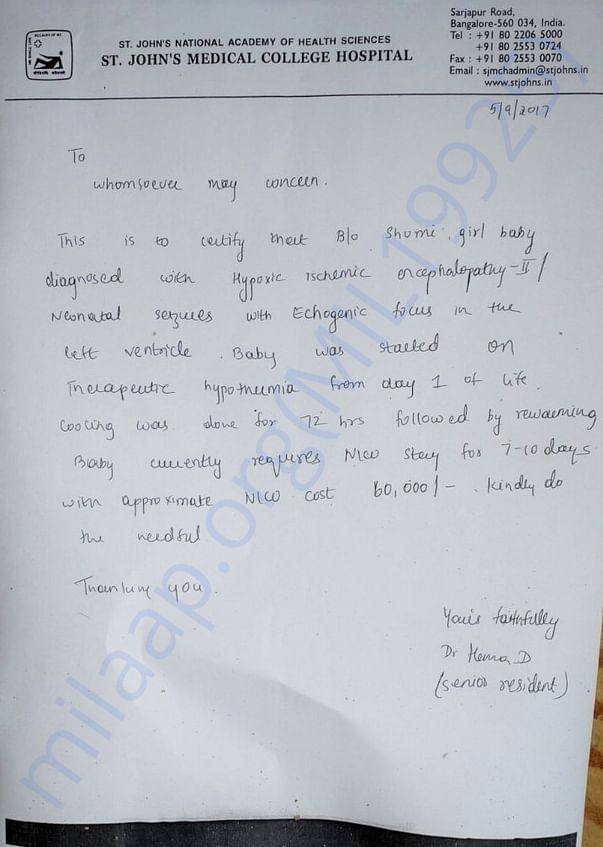 Sarjapur Road,
Bangalore-560 034, India.
Tel : +91 80 2206 5000
+91 80 2553 0724
Fax : +91 80 2553 0070
Email : sjmchadmin@stjohns.in
www.stjohns.in
ST. JOHN'S NATIONAL ACADEMY OF HEALTH SCIENCES
ST. JOHN'S MEDICAL COLLEGE HOSPITAL
5/9/2017
To
whomsoever may concern.
This is to certify that B/o Shomi, girl baby
diagnosed with Hypoxic ischemic encephalopathy-II/
Neonatal seizures with Echogenic focus in the
left ventricle. Baby was started on
Therapeutic hypothermia from day 1 of life.
Cooling was done for 72 hrs followed by rewarming
Baby currently requires NICU stay for 7-10 days
with approximate NICU cost 60,000/-. Kindly do
the needful
Thanking you.
Yours faithfully
Dr Hema D
(senior resident)
milaap.org(MIL199251